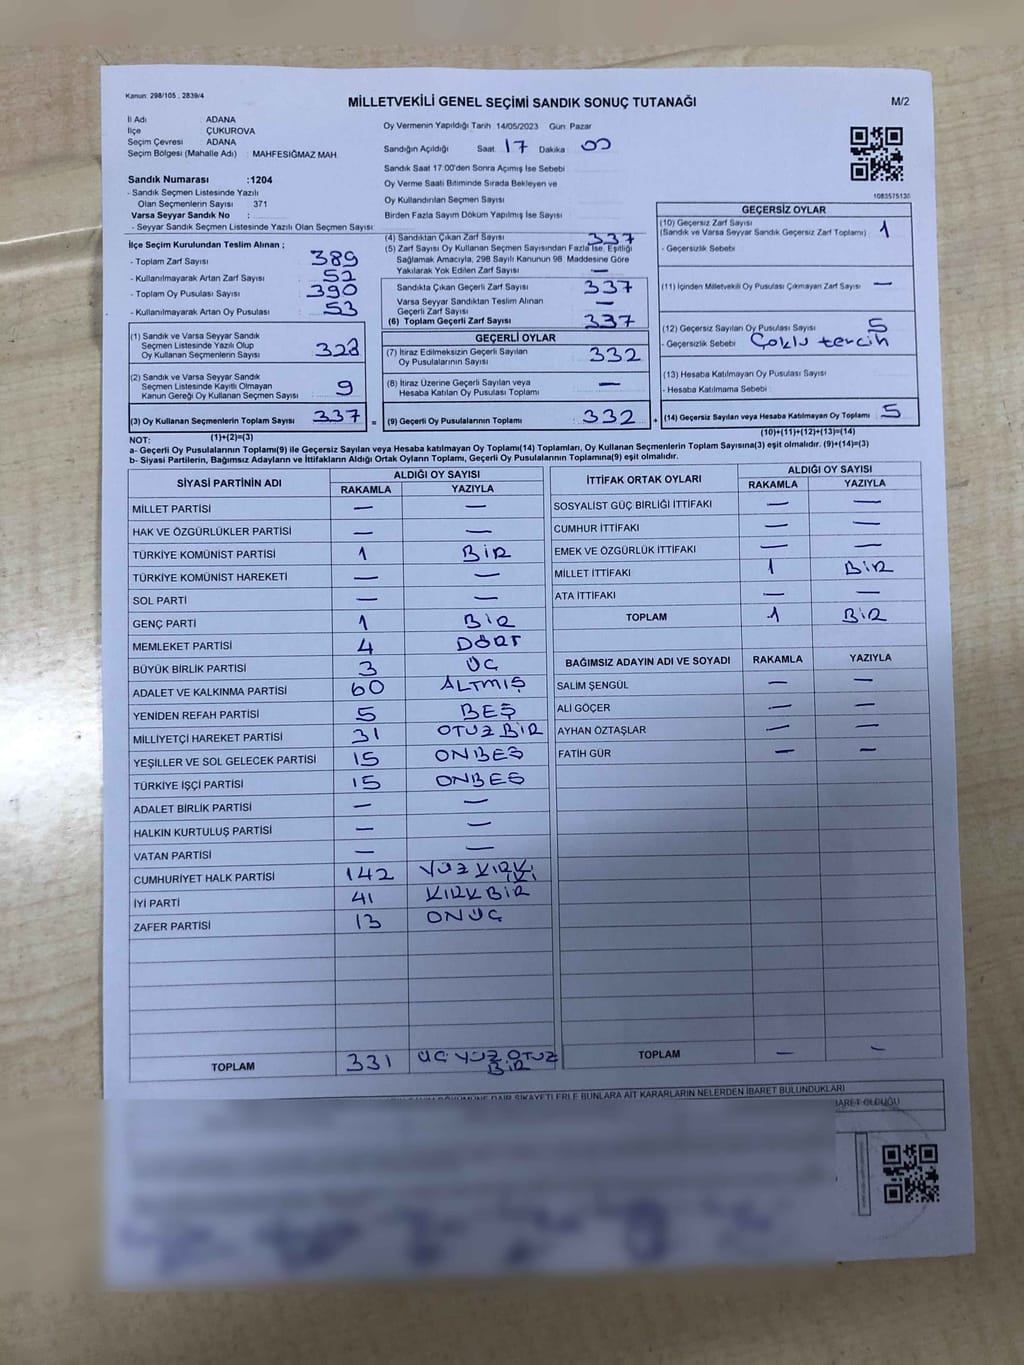 Kanun: 298/105 , 2839/4
MİLLETVEKİLİ GENEL SEÇİMİ SANDIK SONUÇ TUTANAĞI
M/2
İl Adı : ADANA
İlçe : ÇUKUROVA
Seçim Çevresi : ADANA
Seçim Bölgesi (Mahalle Adı) : MAHFESIĞMAZ MAH.
Sandık Numarası :1204
- Sandık Seçmen Listesinde Yazılı
Olan Seçmenlerin Sayısı : 371
Varsa Seyyar Sandık No :
- Seyyar Sandık Seçmen Listesinde Yazılı Olan Seçmen Sayısı :
Oy Vermenin Yapıldığı Tarih : 14/05/2023 Gün: Pazar
Sandığın Açıldığı Saat: 17 Dakika: 00
Sandık Saat 17:00'den Sonra Açımış İse Sebebi :
Oy Verme Saati Bitiminde Sırada Bekleyen ve
Oy Kullandırılan Seçmen Sayısı :
Birden Fazla Sayım Döküm Yapılmış İse Sayısı :
1083575130
İlçe Seçim Kurulundan Teslim Alınan ;
- Toplam Zarf Sayısı : 389
- Kullanılmayarak Artan Zarf Sayısı : 52
- Toplam Oy Pusulası Sayısı : 390
- Kullanılmayarak Artan Oy Pusulası : 53
(1) Sandık ve Varsa Seyyar Sandık
Seçmen Listesinde Yazılı Olup
Oy Kullanan Seçmenlerin Sayısı : 328
(2) Sandık ve Varsa Seyyar Sandık
Seçmen Listesinde Kayıtlı Olmayan
Kanun Gereği Oy Kullanan Seçmen Sayısı : 9
(3) Oy Kullanan Seçmenlerin Toplam Sayısı : 337 =
(1)+(2)=(3)
(4) Sandıktan Çıkan Zarf Sayısı : 337
(5) Zarf Sayısı Oy Kullanan Seçmen Sayısından Fazla İse, Eşitliği
Sağlamak Amacıyla, 298 Sayılı Kanunun 98. Maddesine Göre
Yakılarak Yok Edilen Zarf Sayısı : —
Sandıkta Çıkan Geçerli Zarf Sayısı : 337
Varsa Seyyar Sandıktan Teslim Alınan
Geçerli Zarf Sayısı : —
(6) Toplam Geçerli Zarf Sayısı : 337
GEÇERLİ OYLAR
(7) İtiraz Edilmeksizin Geçerli Sayılan
Oy Pusulalarının Sayısı : 332
(8) İtiraz Üzerine Geçerli Sayılan veya
Hesaba Katılan Oy Pusulası Toplamı : —
(9) Geçerli Oy Pusulalarının Toplamı : 332 +
GEÇERSİZ OYLAR
(10) Geçersiz Zarf Sayısı
(Sandık ve Varsa Seyyar Sandık Geçersiz Zarf Toplamı) : 1
- Geçersizlik Sebebi :
(11) İçinden Milletvekili Oy Pusulası Çıkmayan Zarf Sayısı : —
(12) Geçersiz Sayılan Oy Pusulası Sayısı : 5
- Geçersizlik Sebebi : Çoklu tercih
(13) Hesaba Katılmayan Oy Pusulası Sayısı :
- Hesaba Katılmama Sebebi :
(14) Geçersiz Sayılan veya Hesaba Katılmayan Oy Toplamı : 5
(10)+(11)+(12)+(13)=(14)
NOT:
a- Geçerli Oy Pusulalarının Toplamı(9) ile Geçersiz Sayılan veya Hesaba katılmayan Oy Toplamı(14) Toplamları, Oy Kullanan Seçmenlerin Toplam Sayısına(3) eşit olmalıdır. (9)+(14)=(3)
b- Siyasi Partilerin, Bağımsız Adayların ve İttifakların Aldığı Ortak Oyların Toplamı, Geçerli Oy Pusulalarının Toplamına(9) eşit olmalıdır.
SİYASİ PARTİNİN ADI ALDIĞI OY SAYISI
RAKAMLA YAZIYLA
MİLLET PARTİSİ — —
HAK VE ÖZGÜRLÜKLER PARTİSİ — —
TÜRKİYE KOMÜNİST PARTİSİ 1 BİR
TÜRKİYE KOMÜNİST HAREKETİ — —
SOL PARTİ — —
GENÇ PARTİ 1 BİR
MEMLEKET PARTİSİ 4 DÖRT
BÜYÜK BİRLİK PARTİSİ 3 ÜÇ
ADALET VE KALKINMA PARTİSİ 60 ALTMIŞ
YENİDEN REFAH PARTİSİ 5 BEŞ
MİLLİYETÇİ HAREKET PARTİSİ 31 OTUZ BİR
YEŞİLLER VE SOL GELECEK PARTİSİ 15 ONBEŞ
TÜRKİYE İŞÇİ PARTİSİ 15 ONBEŞ
ADALET BİRLİK PARTİSİ — —
HALKIN KURTULUŞ PARTİSİ — —
VATAN PARTİSİ — —
CUMHURİYET HALK PARTİSİ 142 YÜZ KIRK İKİ
İYİ PARTİ 41 KIRK BİR
ZAFER PARTİSİ 13 ONÜÇ
TOPLAM 331 ÜÇ YÜZ OTUZ BİR
İTTİFAK ORTAK OYLARI ALDIĞI OY SAYISI
RAKAMLA YAZIYLA
SOSYALİST GÜÇ BİRLİĞİ İTTİFAKI — —
CUMHUR İTTİFAKI — —
EMEK VE ÖZGÜRLÜK İTTİFAKI — —
MİLLET İTTİFAKI 1 BİR
ATA İTTİFAKI — —
TOPLAM 1 BİR
BAĞIMSIZ ADAYIN ADI VE SOYADI RAKAMLA YAZIYLA
SALİM ŞENGÜL — —
ALİ GÖÇER — —
AYHAN ÖZTAŞLAR — —
FATİH GÜR — —
TOPLAM — —
DAİR ŞİKAYETLERLE BUNLARA AİT KARARLARIN NELERDEN İBARET BULUNDUKLARI